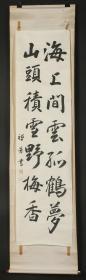 海上間雲孤鶴夢
山頭積雪野梅香